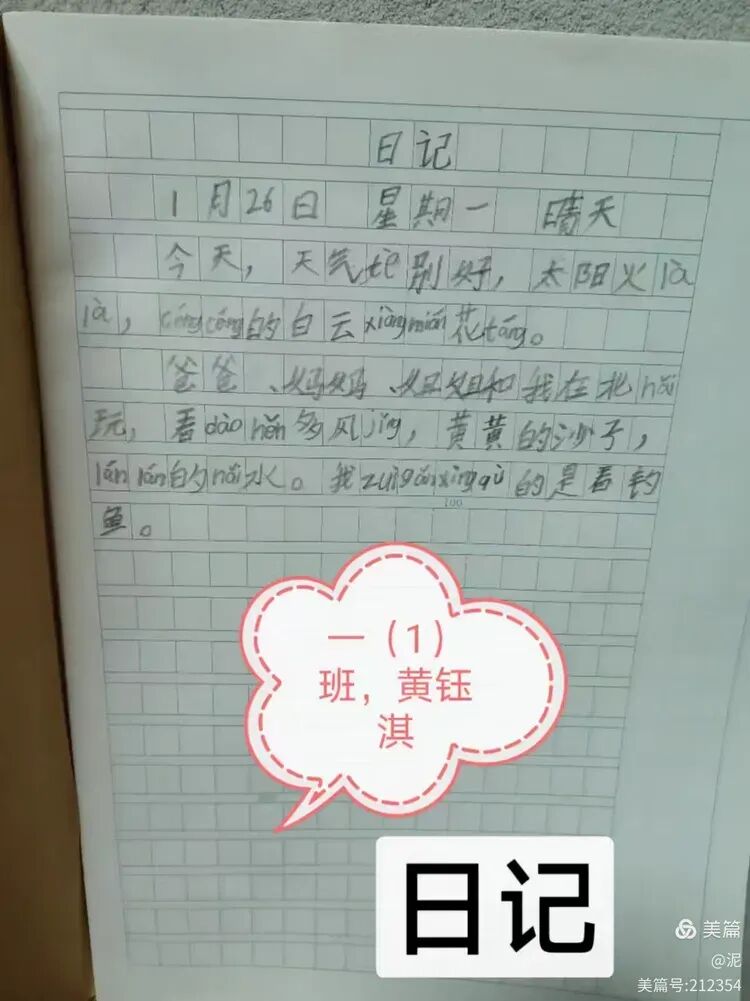 日记
1月26日 星期一 晴天
今天，天气tè别好，太阳火là
là，céngcéng的白云xiàngmián花táng。
爸爸、妈妈、姐姐和我在北hǎi
玩，看dào hěn多风jǐng，黄黄的沙子，
lán lán的hǎi水。我zuì gǎn xìng qù的是看钓
鱼。
100
一（1）
班，黄钰
淇
日记
美篇
@泥
美篇号:212354